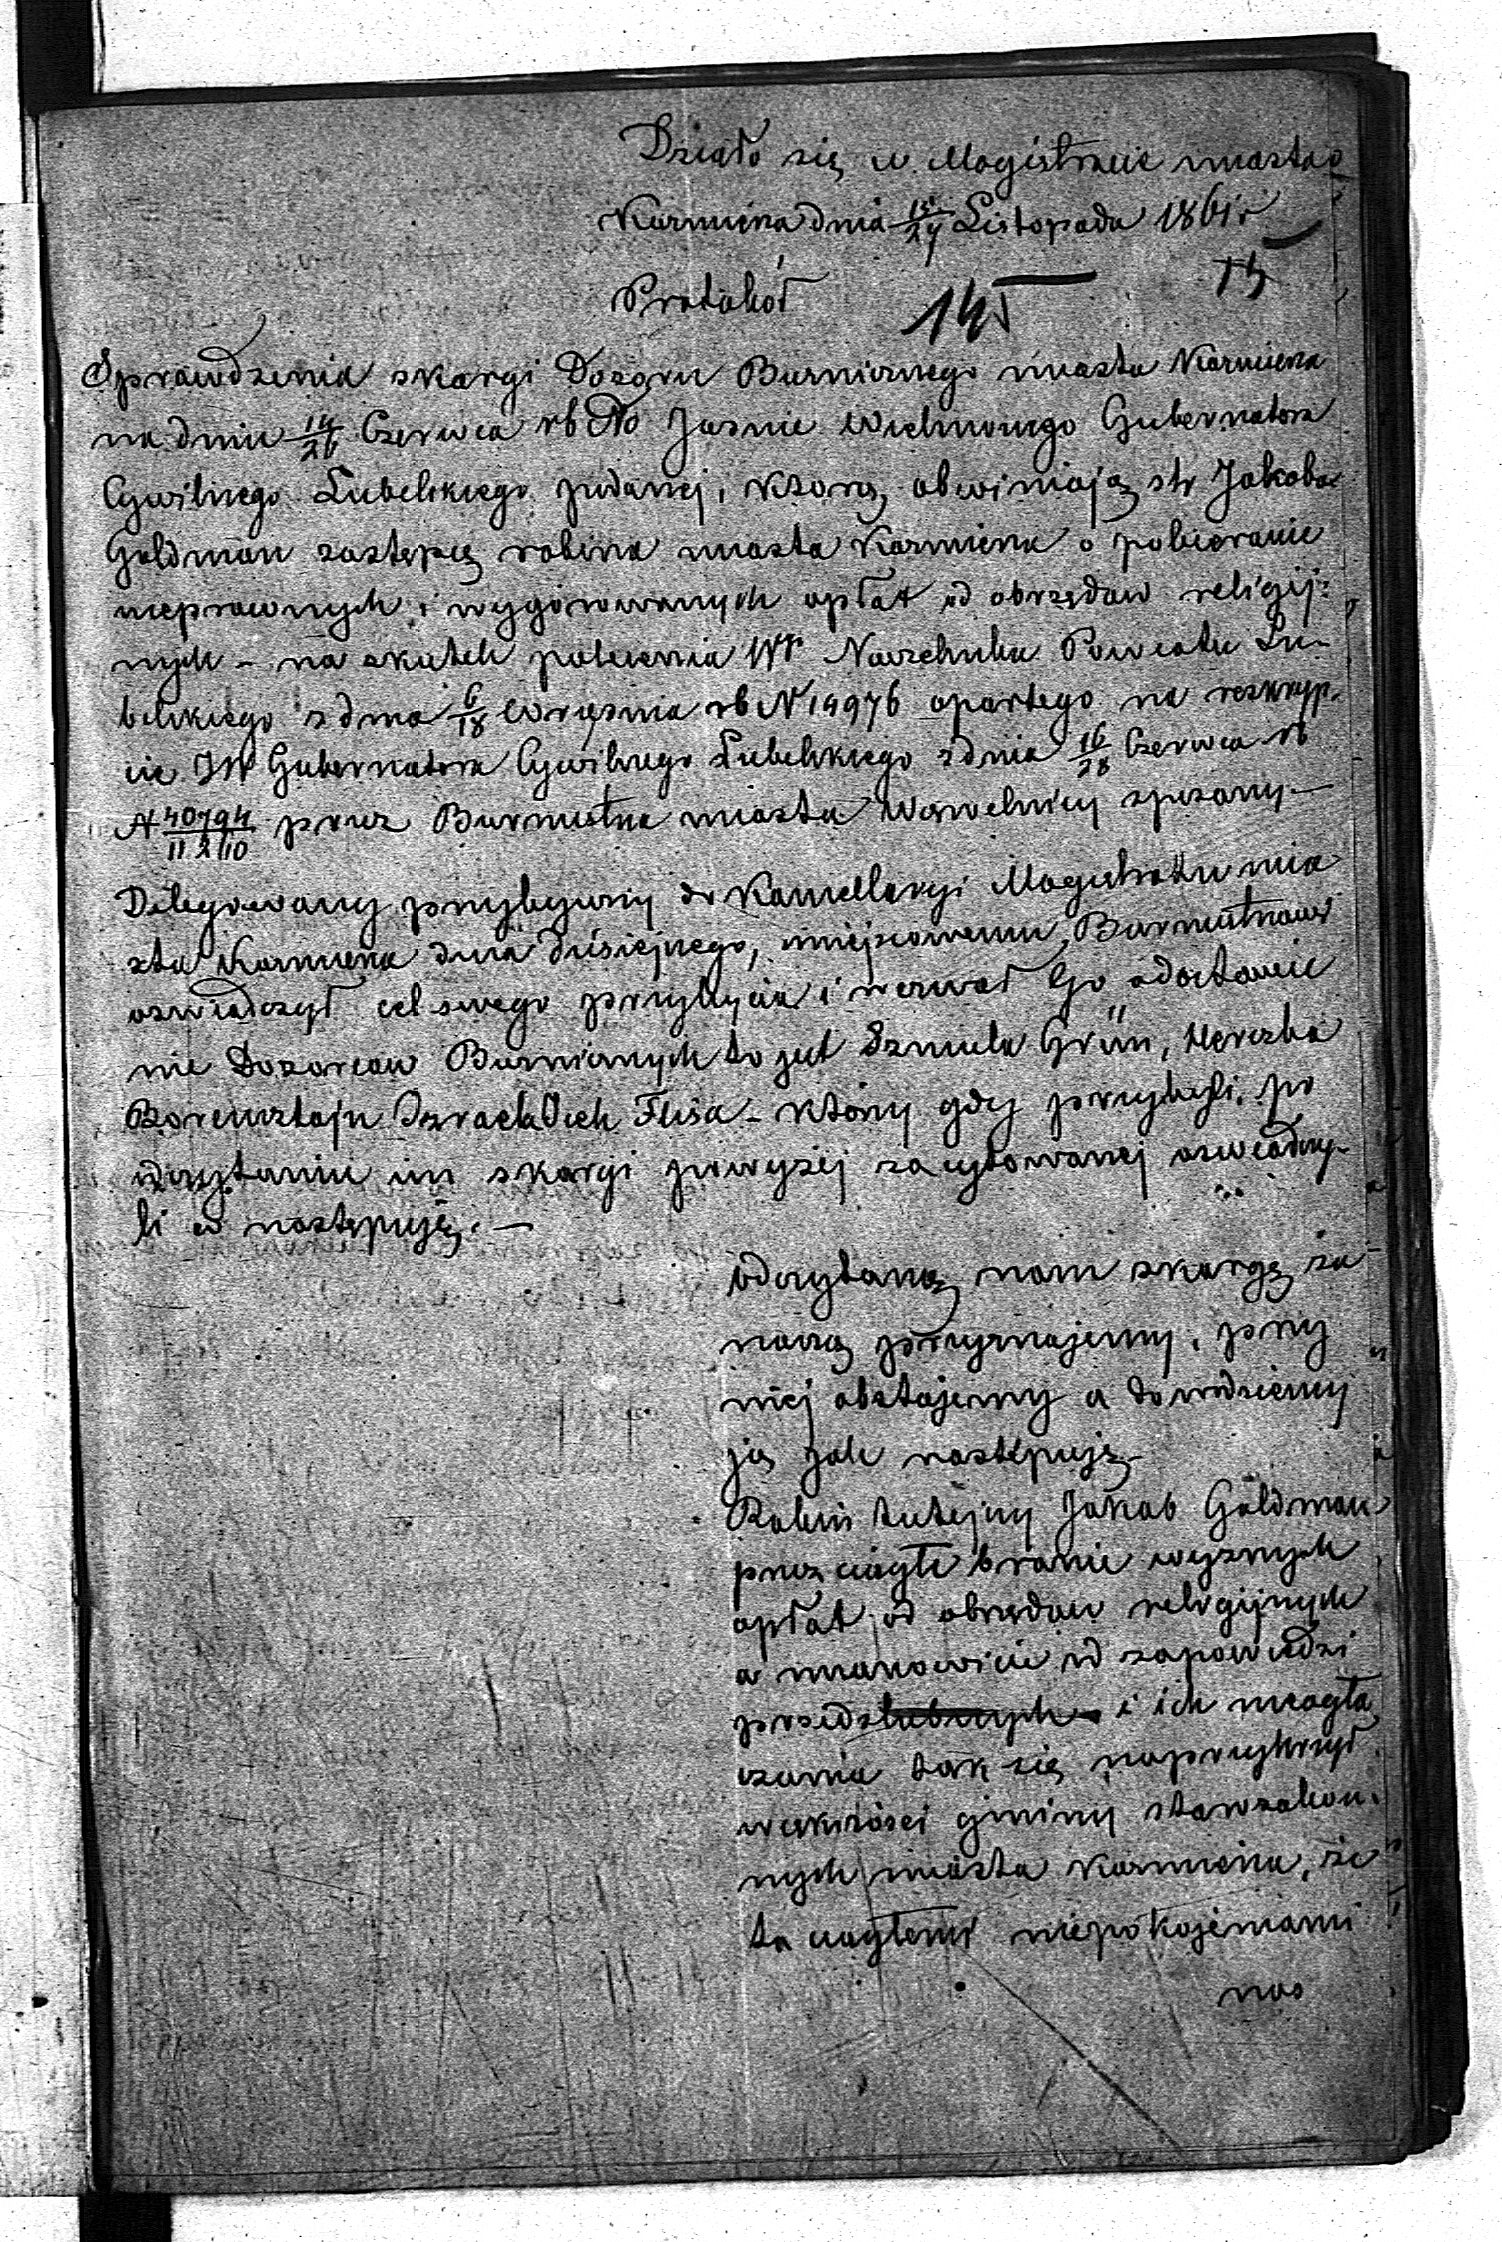 Działo się w Magistracie miasta
Kazmierza dnia 15/27 Listopada 1861 r
Protokół 145 15
Sprawdzenia skargi Dozoru Bużnicznego miasta Kazmierza
na dniu 14/26 Czerwca rb do Jasnie Wielmożnego Gubernatora
Cywilnego Lubelskiego podanej, którą obwiniają str Jakoba
Goldman zastępcę rabina miasta Kazmierza o pobieranie
nieprawnych i wygórowanych opłat od obrzędow religij:
nych – na skutek polecenia Wo Naczelnika Powiatu Lu-
belskiego z dnia 6/18 Września rb N 14976 opartego na reskryp-
cie JW Gubernatora Cywilnego Lubelskiego z dnia 16/28 Czerwca rb
N 40794 przez Burmistrza miasta Wąwelnicy spisany –
Delegowany przybywszy do Kancellaryi Magistratu mia
sta Kazmierza dnia dzisiejszego, miejscowemu Burmistrzowi
oswiadczył cel swego przybycia i wezwał Go o dostawie
nie Dozorcow Bużnicznych to jest Szmula Grün, Herszka
Borensztajn Izraela Flisa – którzy gdy przybyli, po
odczytaniu im skargi powyżej zacytowanej oswiadczy-
li co następuję. –
Odczytaną nam skargę za
naszą przyznajemy, przy
niej obstajemy a dowodziemy
ją jak następuję –
Rabin tutejszy Jakob Goldman
przez ciągłe branie wyższych
opłat od obrzędow religijnych
a mianowicie od zapowiedzi
przedslubnych i ich nieogła
szania tak się naprzykrzył
większości gminy starozakon.
nych miasta Kazmierza, że
ta ciągłemi niepokojeniami
nas